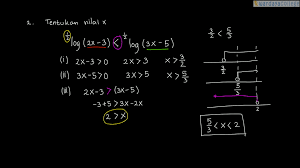 2. Tentukan nilai x
½log (2x-3) < ½log (3x-5)
(i) 2x-3>0 2x>3 x>3/2
(ii) 3x-5>0 3x>5 x>5/3
(iii) 2x-3 > (3x-5)
-3+5 > 3x-2x
2 > x
3/2 < 5/3
3/2
5/3
2
5/3 < x < 2